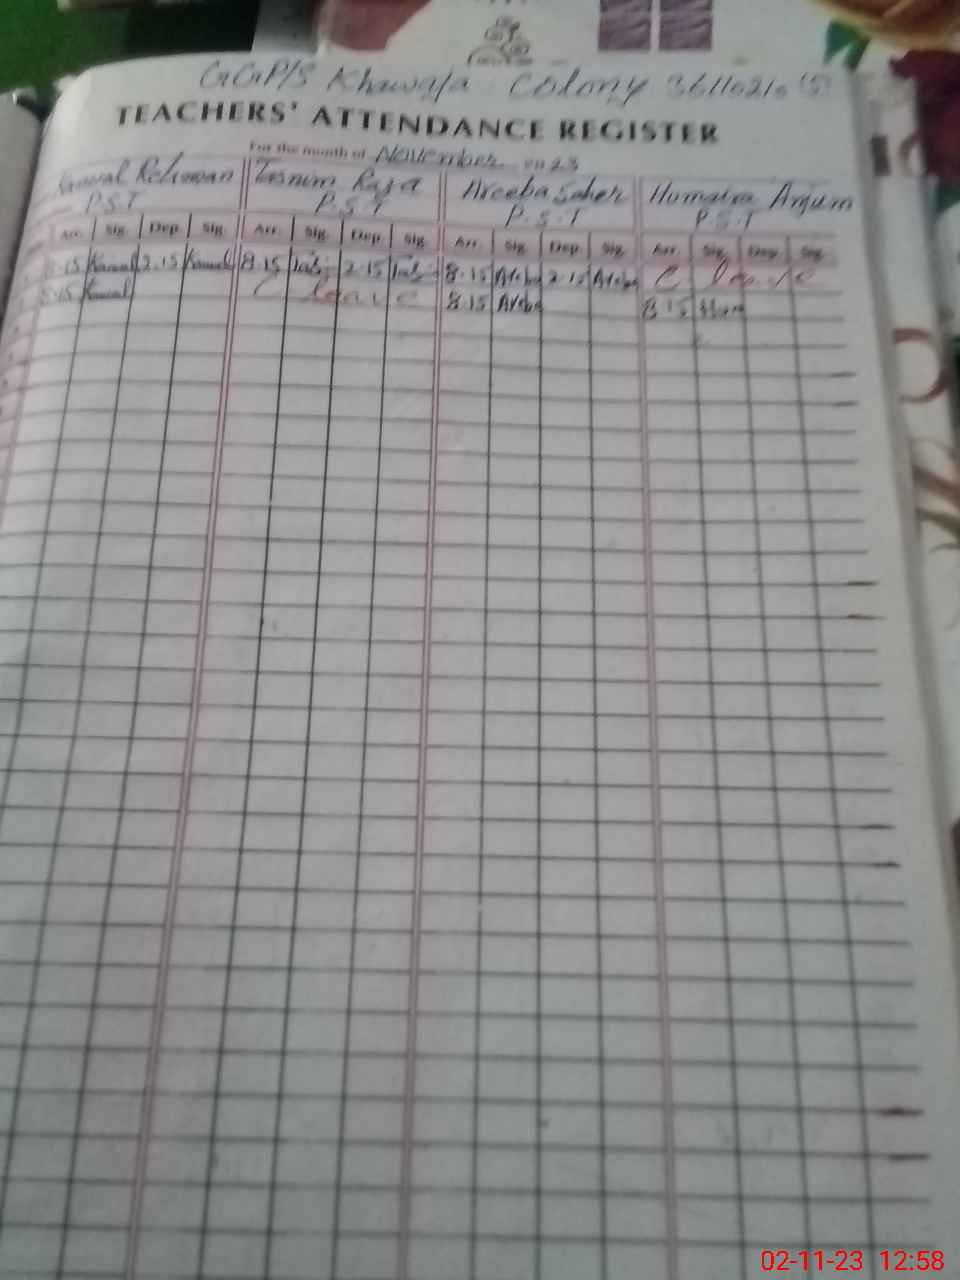 GGP/S Khawaja Colony 36110210 (5)
TEACHERS' ATTENDANCE REGISTER
For the month of November 2023
Kanwal Rehman Tasnim Raza Areeba Saher Humaira Anjum
P.S.T P.S.T P.S.T P.S.T
Arr. Sig. Dep. Sig. Arr. Sig. Dep. Sig. Arr. Sig. Dep. Sig. Arr. Sig. Dep. Sig.
8.15 Kanwal 2.15 Kanwal 8.15 2.15 8.15 Areeba 2.15 Areeba C leave
8.15 Kanwal C leave 8.15 Areeba 8.15 Hum
02-11-23 12:58